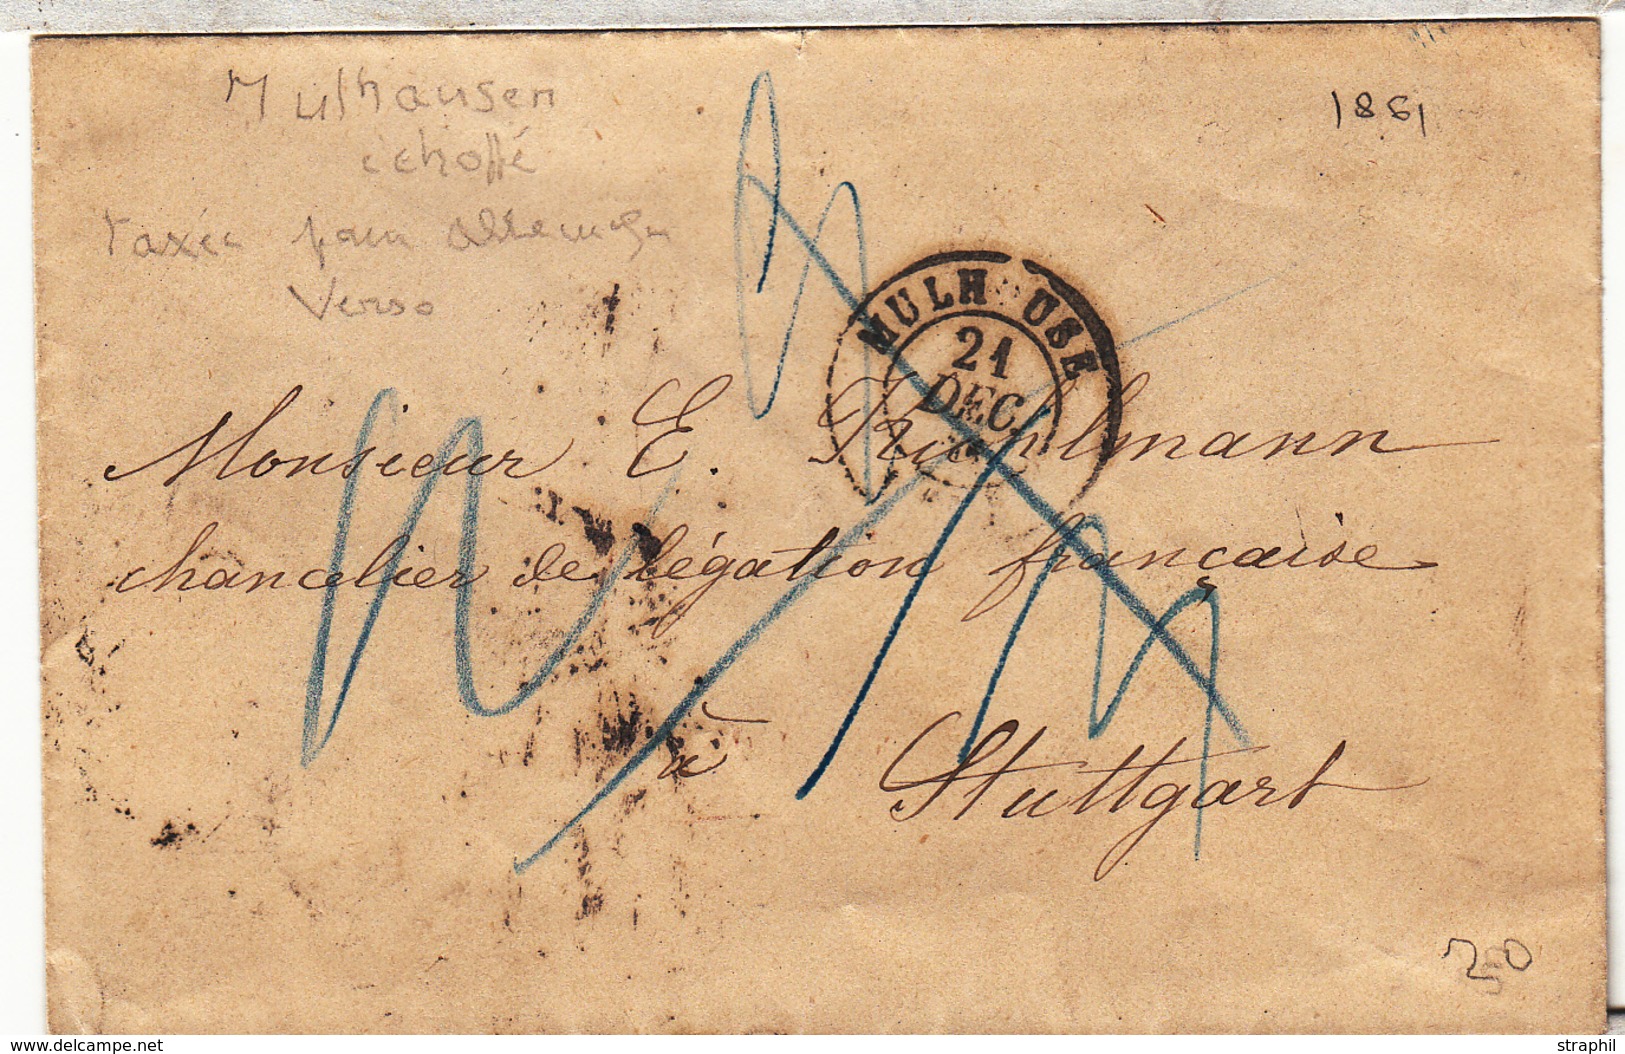 Mulhausen
échoppé
taxée pour Allemagn
Verso
1861
MULHOUSE
21
DEC.
Monsieur E. Kuhlmann
chancelier de légation française
à Stuttgart
delcampe.net
straphil